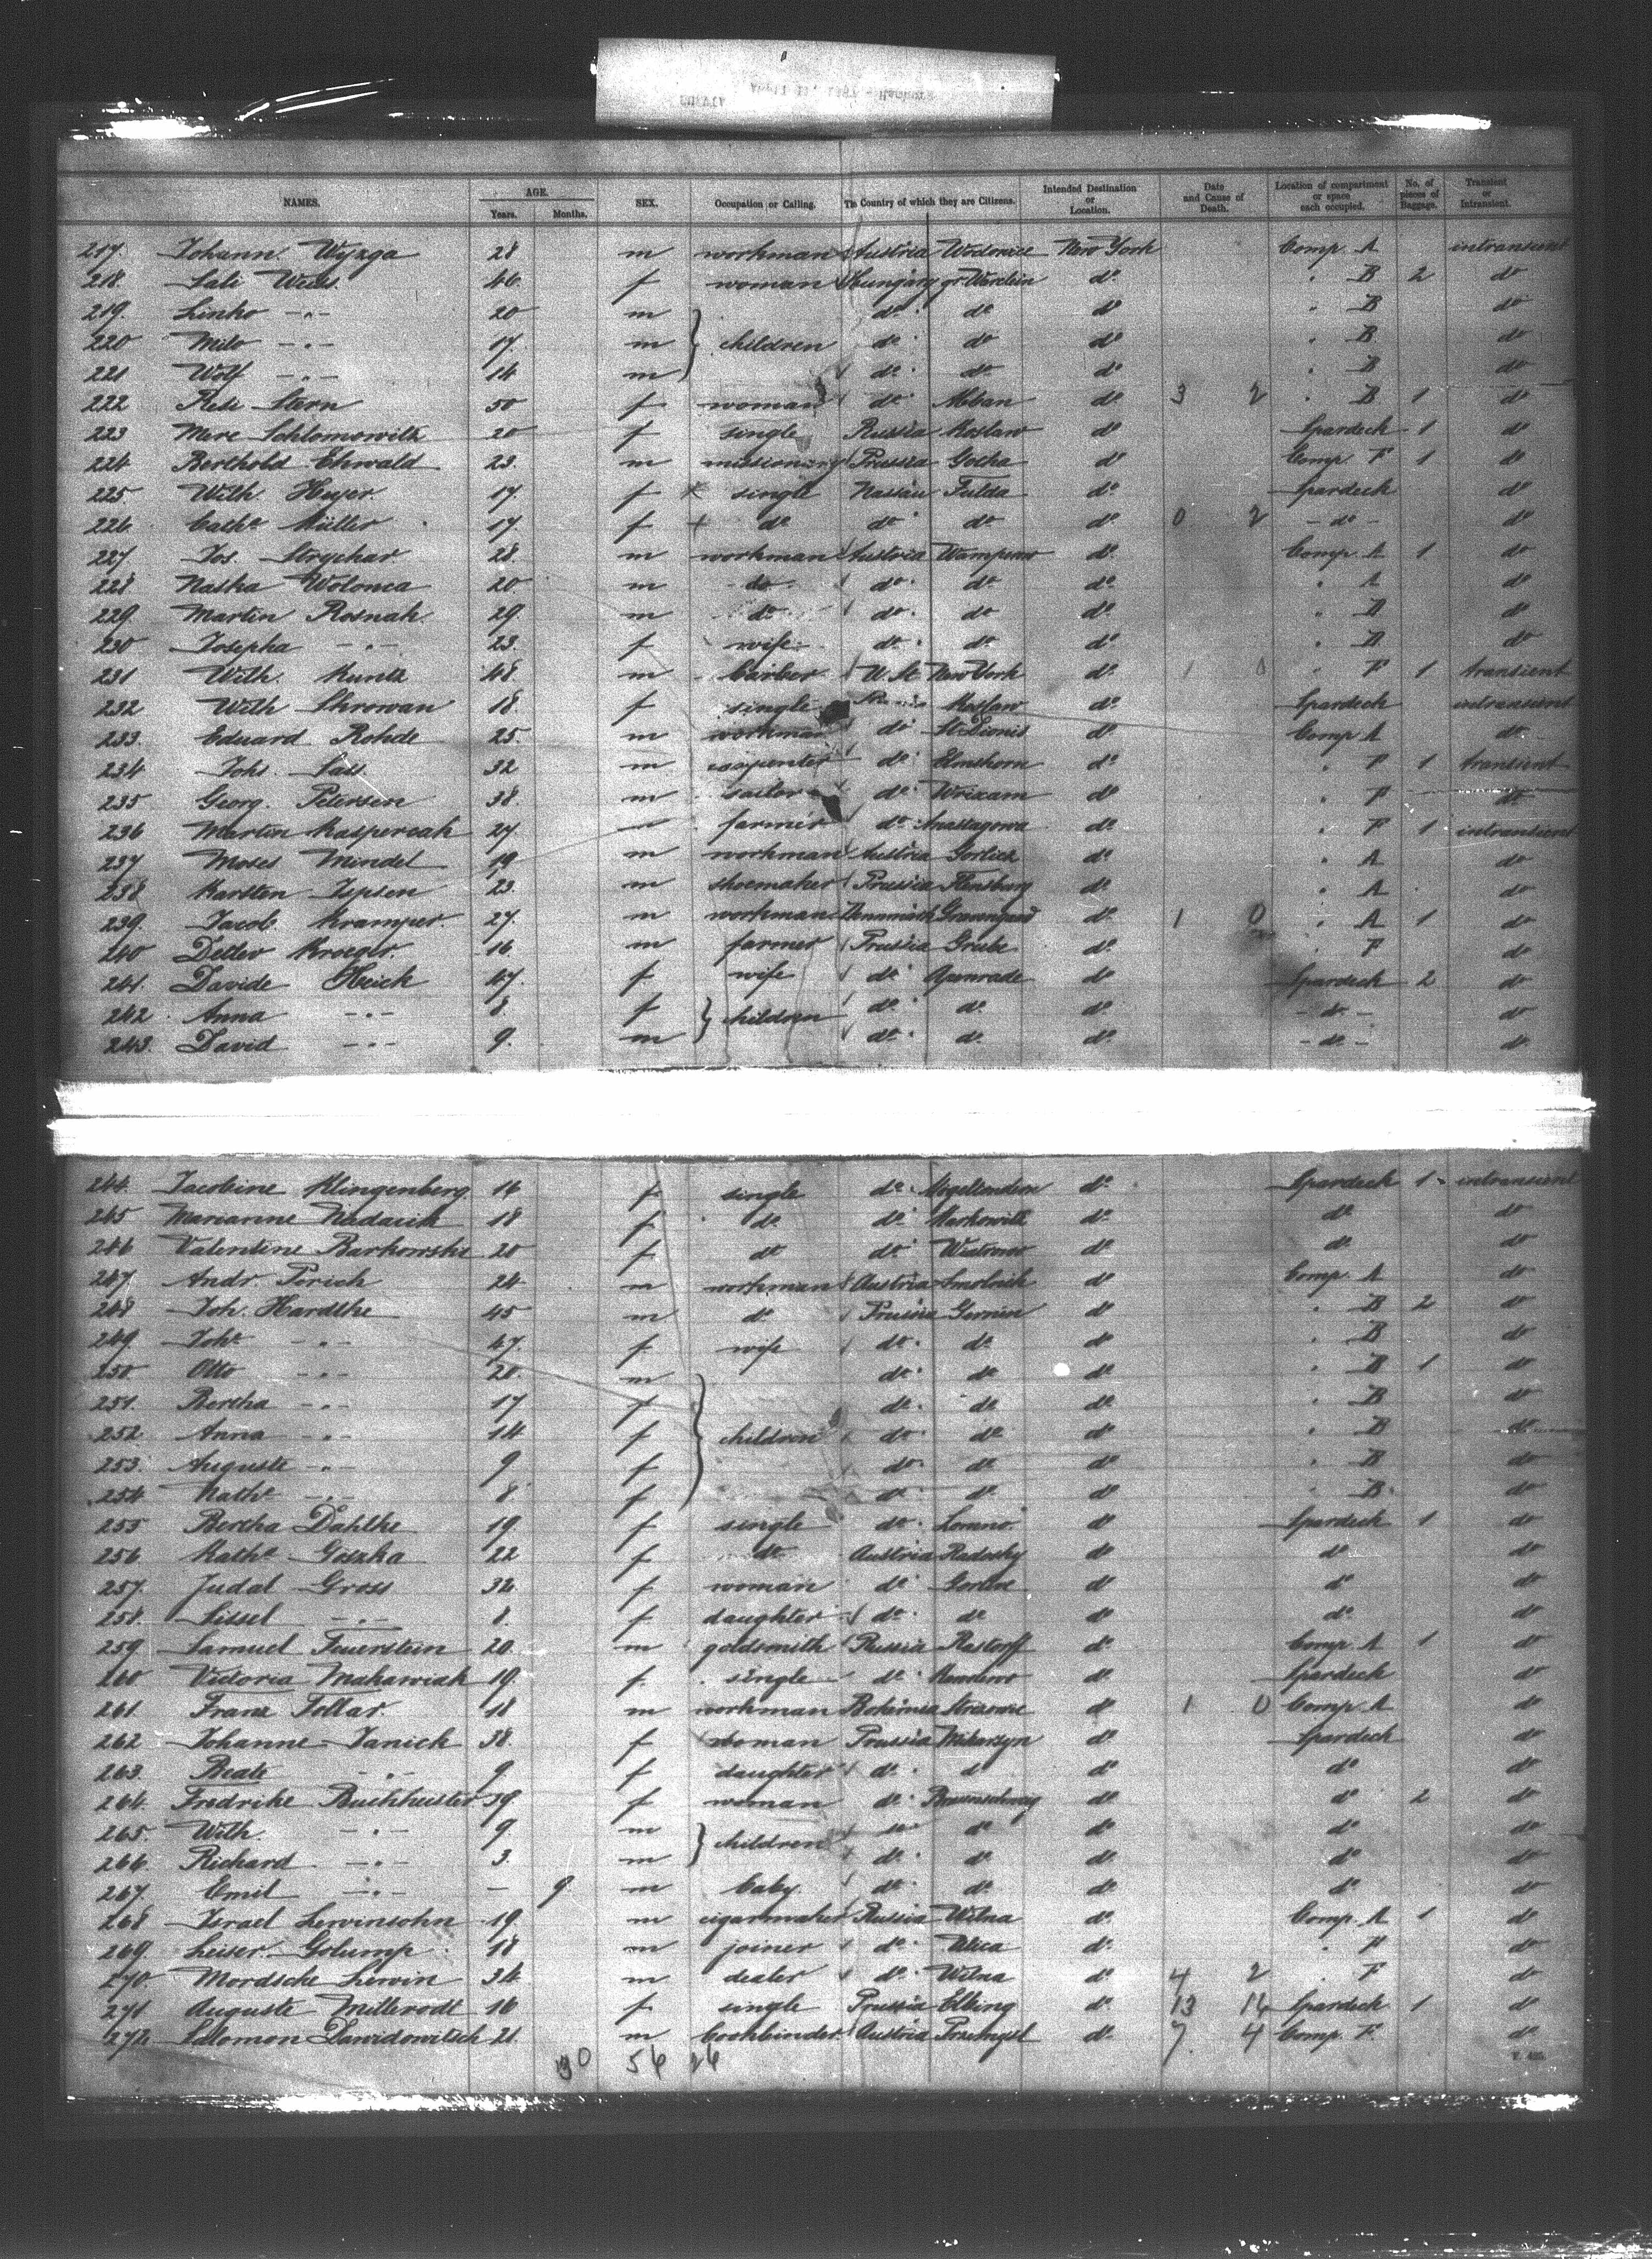 NAMES. AGE. Years. Months. SEX. Occupation or Calling. The Country of which they are Citizens. Intended Destination or Location. Date and Cause of Death. Location of compartment or space each occupied. No. of pieces of Baggage. Transient or Intransient.
217. Johann Wyzga 28 m workman Austria New York Comp. A intransient
218. Sali Weiss 46 f woman Hungary gr Wardein do " B 2 do
219. Linko -"- 20 m do do do " B do
220 Milo -"- 17. m } children do do do " B do
221 Wolf -"- 14 m do do do " B do
222 Resi Stern 50 f woman do do 3 2 " B 1 do
223 Mere Schlomowitz 20 f single Russia Koslaw do Spardeck 1 do
224 Berthold Ehwald 23. m Prussia Gotha do Comp. F 1 do
225 Wilh. Heyer. 17. f x single Nassau Fulda do Spardeck do
226. Cathe Müller 17. f + do do do do 0 2 -do- do
227 Jos. Strychar 28. m workman Austria do Comp. A 1 do
228 Naska Wolonca 20 m do do do do " A do
229. Martin Rosnak. 29. m do do do do " do
230 Josepha -"- 23. f wife do do do " do
231 Wilh. Kuntz 48 m barber U. St. New York do 1 0 " F 1 transient
232 Wilh 18. f single Koslaw do Spardeck intransient
233. Eduard Rohde 25. m workman do do Comp A do
234 Johs. Sass 32 m carpenter do Elmshorn do " F 1 transient
235 Georg. Petersen 38. m sailor do do " F do
236 Martin Kasperzak 27 m farmer do do " F 1 intransient
237 Moses Mindel 19 m workman Austria Gorlice do " A do
238 Karsten Ipsen 23. m shoemaker Prussia Flensburg do " A do
239. Jacob Kramper. 27. m workman Denmark do 1 0 " A 1 do
240 Detlev Kroeger. 16. m farmer Prussia Grube do " F do
241. Davide Heick 47. f wife do Apenrade do Spardeck 2 do
242 Anna -"- 8. f } children do do do -do- do
243. David -"- 9. m do do do -do- do
244. Jacobine Klingenberg 16 f single do do Spardeck 1 intransient
245 Marianne 18 f do do Markowitz do do do
246 Valentine Barkowski 20 f do do do do do
247. Andr. Porich 24 m workman Austria do Comp. A do
248 Joh. Hardtke 45 m do Prussia do " B 2 do
249. Johe -"- 47. f wife do do do " B do
250. Otto -"- 20. m do do do " B 1 do
251. Bertha -"- 17 f do do do " B do
252 Anna -"- 14 f } children do do do " B do
253. Auguste -"- 9 f do do do " B do
254. Kathe -"- 8 f do do do " B. do
255 Bertha Dahlke 19 f single do do Spardeck 1 do
256 Kathe Goszka 22 f do Austria do do do
257. Judal Gross 32 f woman do do do do
258. Lissel -"- 8. f daughter do do do do do
259 Samuel Feuerstein 20. m goldsmith Russia do Comp. A 1 do
260 Victoria Makawiak 19. f single do do Spardeck do
261. Franz Tollar. 18 m workman Bohemia do 1 0 Comp A do
262 Johanne Janich 38. f woman Prussia do Spardeck do
263. Beate -"- 9 f daughter do do do do do
264. Fredrike Buchheister 39 f woman do Braunschweig do do 2 do
265. Wilh. -"- 9. m } children do do do do do
266. Richard -"- 3. m do do do do do
267. Emil -"- - 9 m baby do do do do do
268 Israel Lewinsohn 19. m cigarmaker Russia Wilna do Comp. A 1 do
269. Leiser Golump 18 m joiner do do " F do
270. Mordsche Lewin 34. m dealer do Wilna do 4 2 " F do
271 Auguste Millerodt 16 f single Prussia Elbing do 13 14 Spardeck 1 do
272. Salomon Dawidowitsch 21. m bookbinder Austria Przemysl do 7 4 Comp. F. do
30 54 26